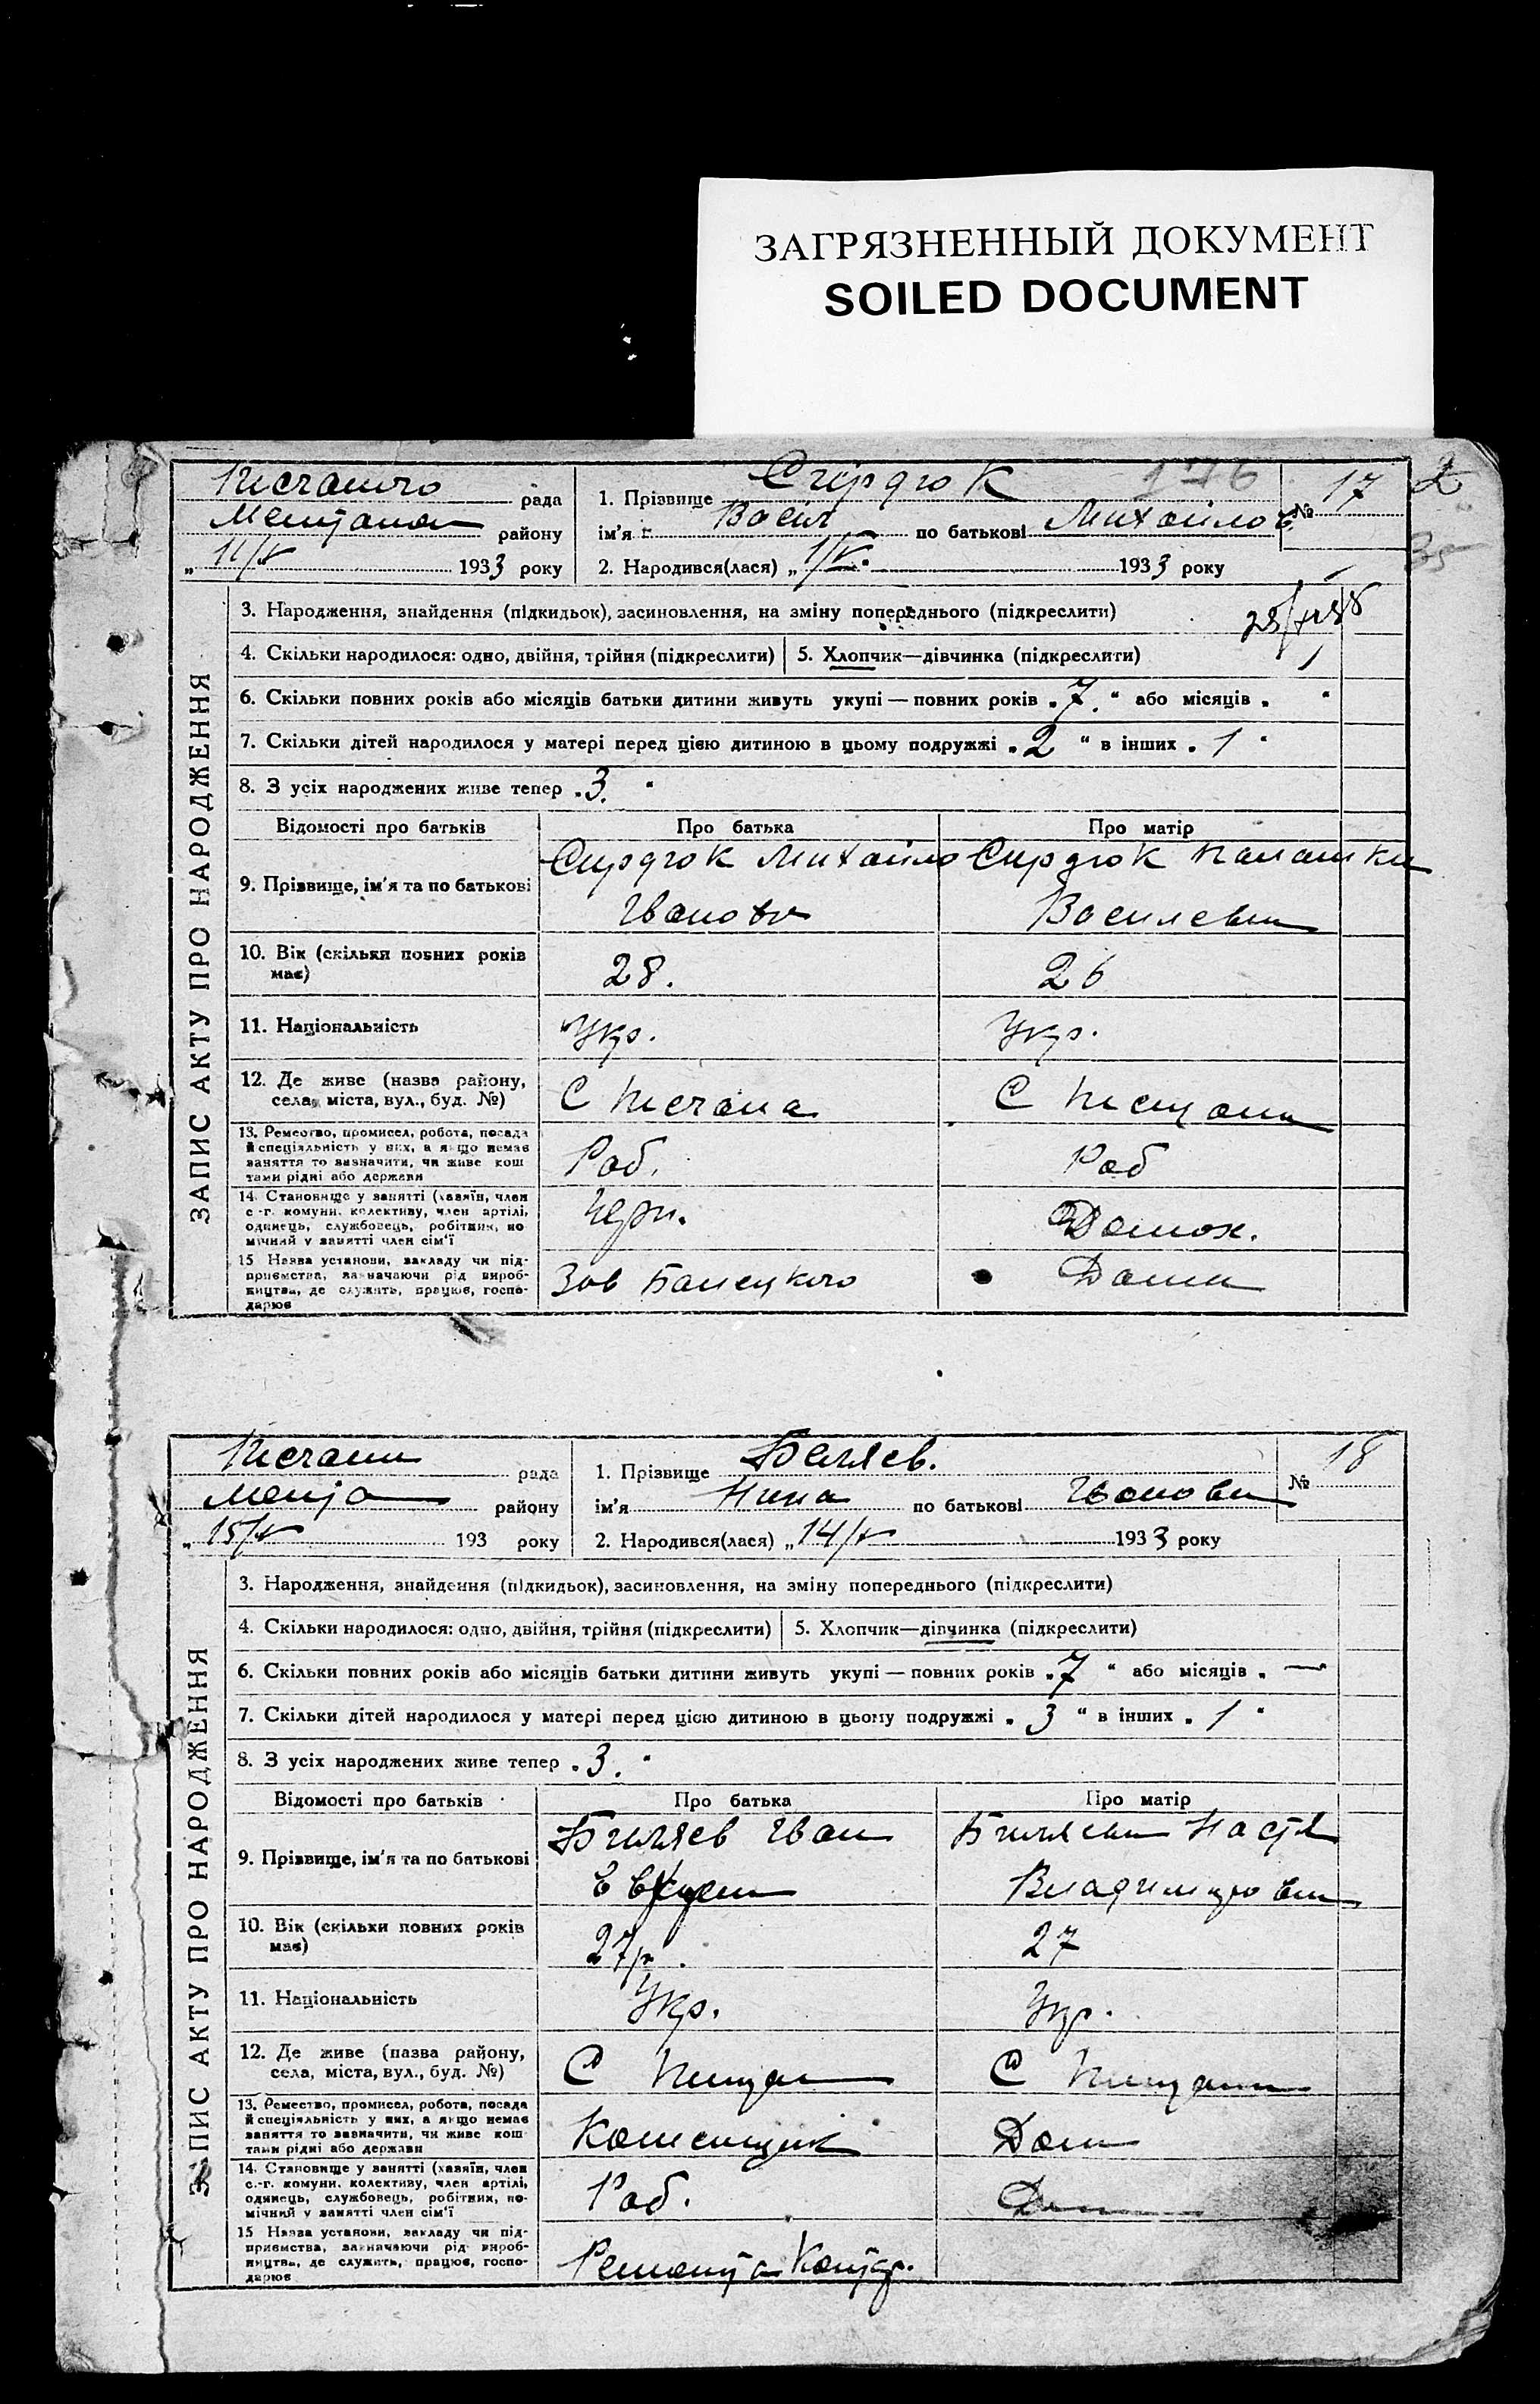 ЗАГРЯЗНЕННЫЙ ДОКУМЕНТ
SOILED DOCUMENT
176 2
35
рада
району
„ 11/V 1933 року
1. Прізвище Сердюк
ім'я Васил по батькові Михайлов
№ 17
2. Народився(лася) „ 1/V. 1933 року
ЗАПИС АКТУ ПРО НАРОДЖЕННЯ
3. Народження, знайдення (підкидьок), засиновлення, на зміну попереднього (підкреслити)
4. Скільки народилося: одно, двійня, трійня (підкреслити) 5. Хлопчик—дівчинка (підкреслити)
6. Скільки повних років або місяців батьки дитини живуть укупі — повних років „ 7 “ або місяців „ “
7. Скільки дітей народилося у матері перед цією дитиною в цьому подружжі „ 2 “ в інших „ 1 “
8. З усіх народжених живе тепер „ 3. “
Відомості про батьків Про батька Про матір
9. Прізвище, ім'я та по батькові
Сирдюк Михайло Сирдюк
Іванов Василевни
10. Вік (скільки повних років має) 28. 26
11. Національність Укр. Укр.
12. Де живе (назва району, села, міста, вул., буд. №) С Песчана С Песчани
13. Ремество, промисел, робота, посада й спеціяльність у них, а якщо немає заняття то зазначити, чи живе коштами рідні або держави Роб. Роб
14. Становище у занятті (хазяїн, член с.-г. комуни, колективу, член артілі, одинець, службовець, робітник, помічний у занятті член сім'ї Чорн. Домох.
15 Назва установи, закладу чи підприємства, зазначаючи рід виробництва, де служить, працює, господарює Зав Дома
рада
району
„ 15/V 193 року
1. Прізвище Беляев.
ім'я Нина по батькові Івановн
№ 18
2. Народився(лася) „ 14/V 1933 року
ЗАПИС АКТУ ПРО НАРОДЖЕННЯ
3. Народження, знайдення (підкидьок), засиновлення, на зміну попереднього (підкреслити)
4. Скільки народилося: одно, двійня, трійня (підкреслити) 5. Хлопчик—дівчинка (підкреслити)
6. Скільки повних років або місяців батьки дитини живуть укупі — повних років „ 7 “ або місяців „ —
7. Скільки дітей народилося у матері перед цією дитиною в цьому подружжі „ 3 “ в інших „ 1 “
8. З усіх народжених живе тепер „ 3. “
Відомості про батьків Про батька Про матір
9. Прізвище, ім'я та по батькові
Биляев Іван Биляева Настя
Владимировн
10. Вік (скільки повних років має) 27р. 27
11. Національність Укр. Укр.
12. Де живе (назва району, села, міста, вул., буд. №) С С
13. Ремество, промисел, робота, посада й спеціяльність у них, а якщо немає заняття то зазначити, чи живе коштами рідні або держави Каменщик Дом
14. Становище у занятті (хазяїн, член с.-г. комуни, колективу, член артілі, одинець, службовець, робітник, помічний у занятті член сім'ї Роб.
15 Назва установи, закладу чи підприємства, зазначаючи рід виробництва, де служить, працює, господарює Ремонт Контор.